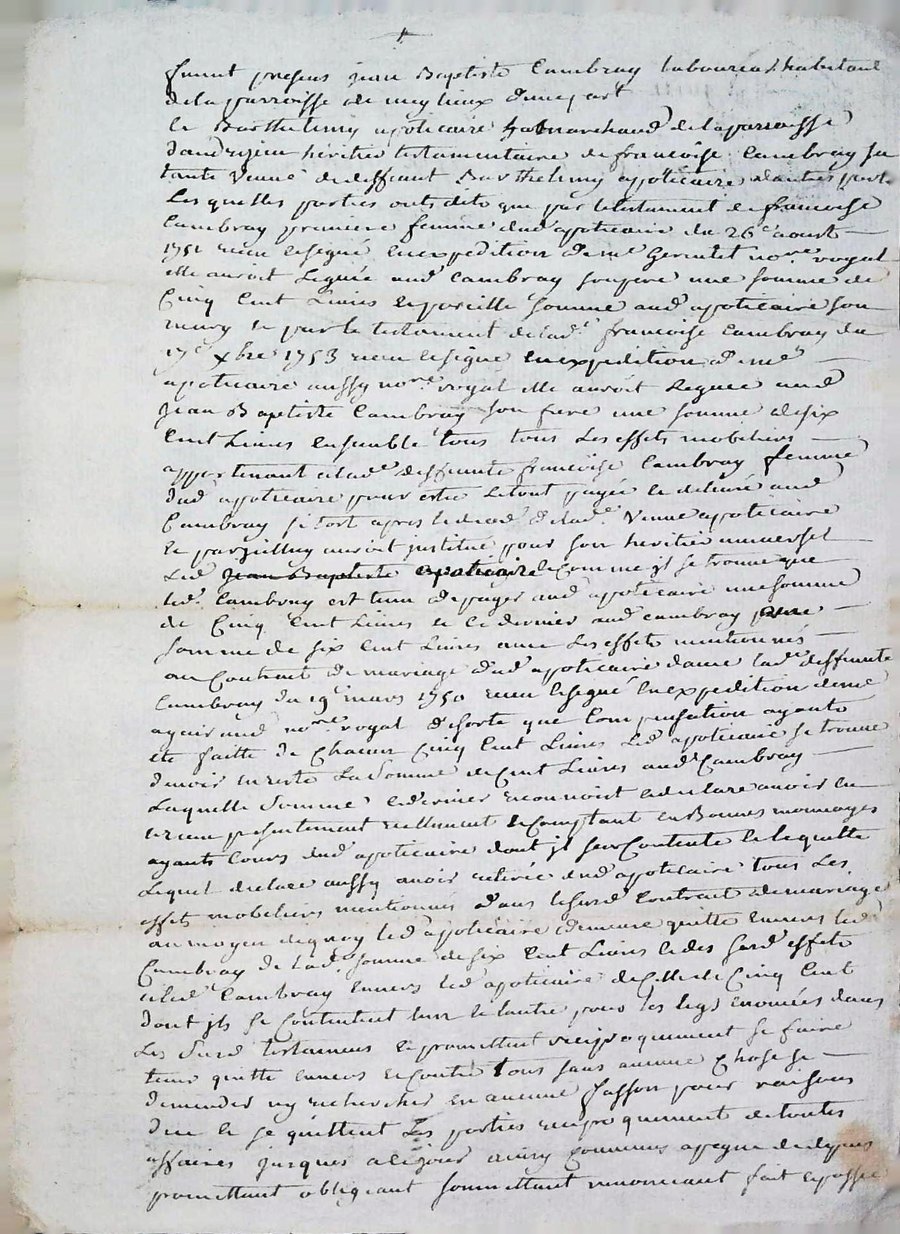 furent presens jean Baptiste Cambray laboureur habitant
de la parroisse de meylieux d'une part
le Barthelemy apoticaire marchand de la parroisse
heritier testamentaire de françoise Cambray sa
tante veuve de deffunt Barthelemy apoticaire d'autre part
Lesquelles parties ont dit que par le testament de françoise
Cambray premiere femme dud apoticaire du 26e aoust
1751 receu et signé en expedition de me nore royal
elle auroit Leguée aud Cambray son pere une somme de
Cinq Cent Livres et pareille somme aud apoticaire son
mary et par le testament de lad.e francoise Cambray du
17e xbre 1753 receu et signé en expedition de me
apoticaire aussy nore royal elle auroit Leguée aud
Jean Baptiste Cambray son frere une somme de six
Cent Livres ensemble tous tous Les effets mobiliers
appartenant a lad.e deffunte françoise Cambray femme
dud apoticaire pour estre le tout payée et delivré aud
Cambray si tost apres le deced de lad.e veuve apoticaire
et par icelluy auroit institué pour son heritier universel
Led Jean Baptiste apoticaire et Comme il se trouve que
led. Cambray est tenu de payer aud apoticaire une somme
de Cinq Cent Livres et ce dernier aud Cambray une
somme de six Cent Livres avec Les effets mentionnés
au Contrat de mariage dud apoticaire avec lad.e deffunte
Cambray du 19e mars 1750 receu et signé en expedition de me
nore royal de sorte que Compensation ayante
eté faitte de Chacun Cinq Cent Livres Led apoticaire se trouve
devoir en reste La somme de Cent Livres aud Cambray
Laquelle somme ce dernier reconnoist et declare avoir eu
et receu presentement reellement et Comptant en Bonnes monnoyes
ayants Cours dud apoticaire dont il se Contente et le quitte
Lequel declare aussy avoir retirée dud apoticaire tous Les
effets mobiliers mentionnés dans le susd Contrat de mariage
au moyen de quoy led apoticaire demeure quitte envers led
Cambray de lad. somme de six Cent Livres et des susd effets
et led Cambray envers led apoticaire de Celle de Cinq Cent
dont ils se Contentent l'un et l'autre pour les legs enoncées dans
Les susd testamens et promettent reciproquement se faire
tenir quitte envers et Contre tous sans aucune Chose se
demander ny rechercher en aucune fasson pour raison
due et se quittent Les parties reciproquement de toutes
affaires jusques a ce jour ainsy Convenu a peyne de depens
promettant obligeant soumettant renonceant fait et passé